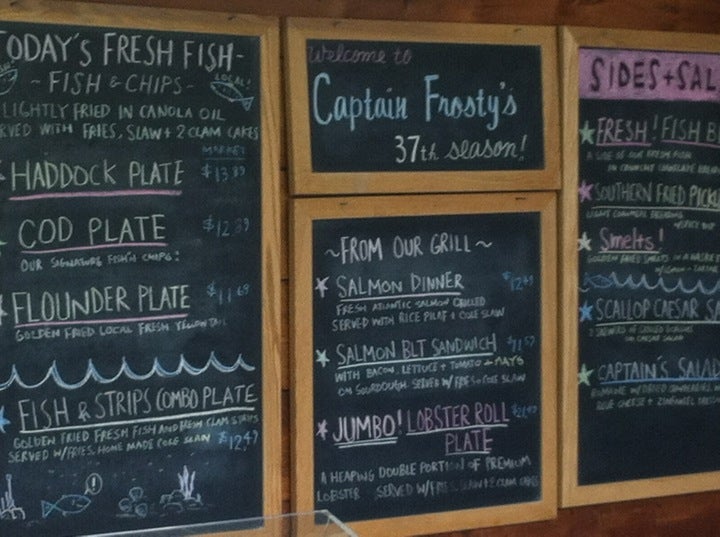 TODAY'S FRESH FISH-
- FISH & CHIPS -
LOCAL!
LIGHTLY FRIED IN CANOLA OIL
SERVED WITH FRIES, SLAW + 2 CLAM CAKES
MARKET
HADDOCK PLATE
COD PLATE $12.89
OUR SIGNATURE FISH N CHIPS!
FLOUNDER PLATE $11.69
GOLDEN FRIED LOCAL FRESH YELLOWTAIL
FISH & STRIPS COMBO PLATE
GOLDEN FRIED FRESH FISH AND FRESH CLAM STRIPS
SERVED W/FRIES, HOME MADE COLE SLAW $12.49
!
Welcome to
Captain Frosty's
37th season!
~FROM OUR GRILL~
SALMON DINNER $12.49
FRESH ATLANTIC SALMON GRILLED
SERVED WITH RICE PILAF + COLE SLAW
SALMON BLT SANDWICH
WITH BACON, LETTUCE + TOMATO + MAYO
ON SOURDOUGH. SERVED W/FRIES + COLE SLAW
JUMBO! LOBSTER ROLL
PLATE
A HEAPING DOUBLE PORTION OF PREMIUM
LOBSTER SERVED W/FRIES, SLAW + 2 CLAM CAKES
SIDES + SAL
FRESH! FISH B
A SIDE OF OUR FRESH FISH
SOUTHERN FRIED PICK
Smelts!
GOLDEN FRIED SMELTS
SCALLOP CAESAR S
2 SKEWERS OF GRILLED SCALLOPS
ON CAESAR SALAD
CAPTAIN'S SALAD